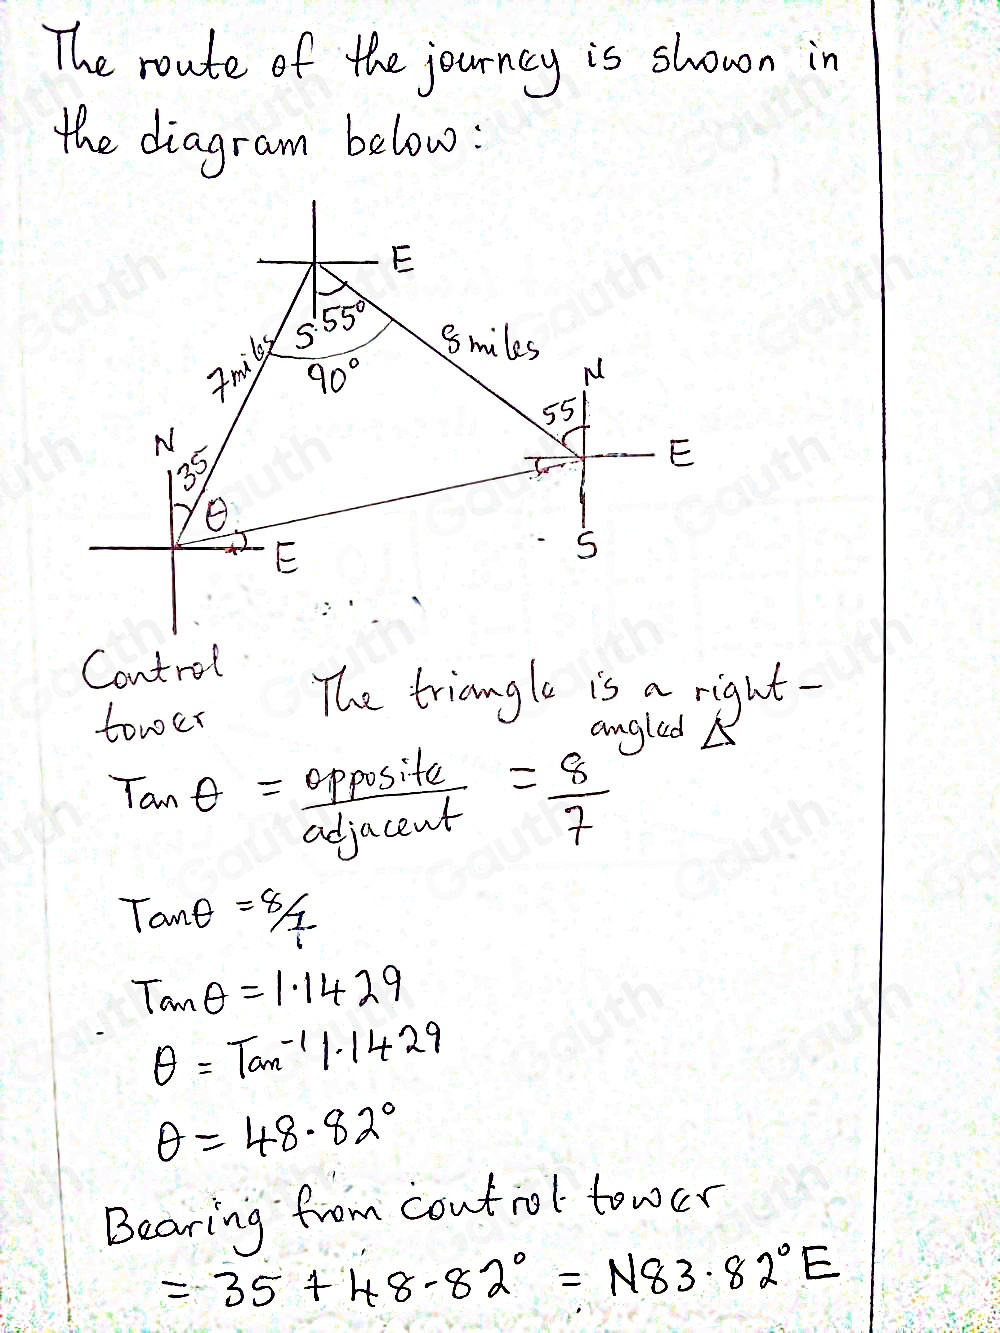 The route of the journey is shown in
the diagram below:
E
S 55°
90°
7 miles
8 miles
N
55
E
S
N
35
θ
E
Control
tower
The triangle is a right-
angled Δ
Tan θ = opposite/adjacent = 8/7
Tanθ = 8/7
Tanθ = 1.1429
θ = Tan⁻¹ 1.1429
θ = 48.82°
Bearing from control tower
= 35 + 48.82° = N83.82°E
Gauth